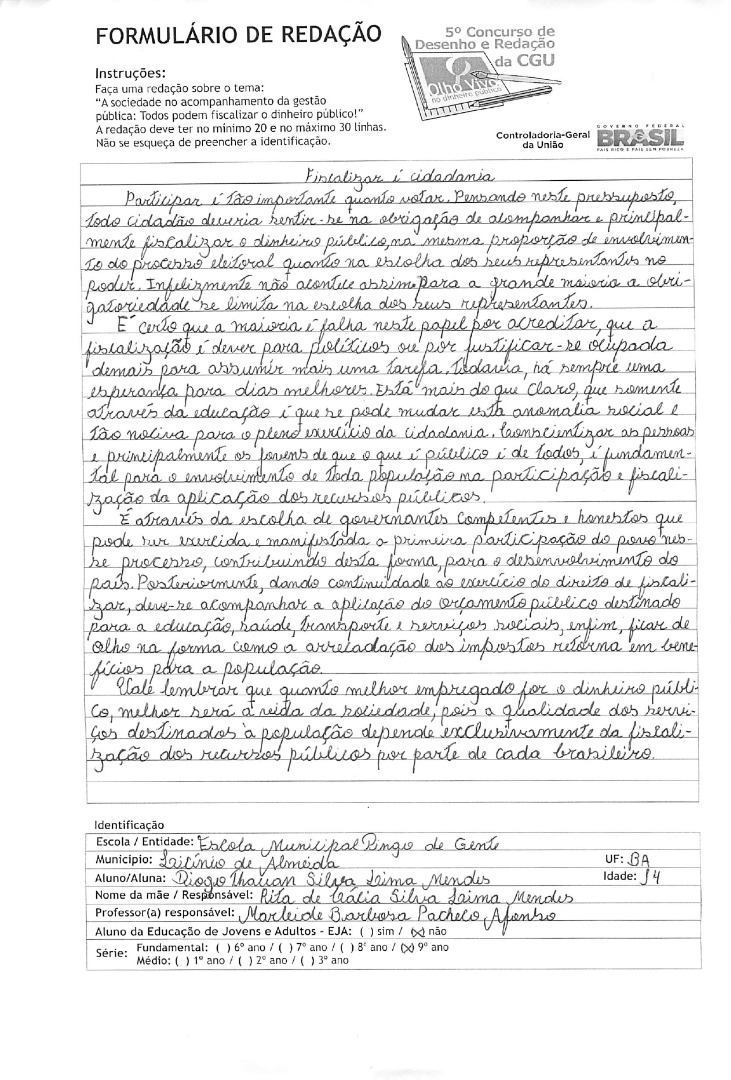 FORMULÁRIO DE REDAÇÃO
5º Concurso de
Desenho e Redação
da CGU
Olho Vivo
no dinheiro público
Instruções:
Faça uma redação sobre o tema:
"A sociedade no acompanhamento da gestão
pública: Todos podem fiscalizar o dinheiro público!"
A redação deve ter no mínimo 20 e no máximo 30 linhas.
Não se esqueça de preencher a identificação.
Controladoria-Geral
da União
GOVERNO FEDERAL
BRASIL
PAÍS RICO É PAÍS SEM POBREZA
Fiscalizar é cidadania
Participar é tão importante quanto votar. Pensando neste pressuposto,
todo cidadão deveria sentir-se na obrigação de acompanhar e principal-
mente fiscalizar o dinheiro público, na mesma proporção de envolvimen-
to do processo eleitoral quanto na escolha dos seus representantes no
poder. Infelizmente não acontece assim. Para a grande maioria a obri-
gatoriedade se limita na escolha dos seus representantes.
É certo que a maioria é falha neste papel por acreditar, que a
fiscalização é dever para políticos ou por justificar-se ocupada
demais para assumir mais uma tarefa. Todavia, há sempre uma
esperança para dias melhores. Está mais do que claro, que somente
através da educação é que se pode mudar esta anomalia social e
tão nociva para o pleno exercício da cidadania. Conscientizar as pessoas
e principalmente os jovens de que o que é público é de todos, é fundamen-
tal para o envolvimento de toda população na participação e fiscali-
zação da aplicação dos recursos públicos.
É através da escolha de governantes competentes e honestos que
pode ser exercida e manifestada a primeira participação do povo nes-
se processo, contribuindo desta forma, para o desenvolvimento do
país. Posteriormente, dando continuidade ao exercício do direito de fiscali-
zar, deve-se acompanhar a aplicação do orçamento público destinado
para a educação, saúde, transporte e serviços sociais, enfim, ficar de
olho na forma como a arrecadação dos impostos retorna em bene-
fícios para a população.
Vale lembrar que quanto melhor empregado for o dinheiro públi-
co, melhor será a vida da sociedade, pois a qualidade dos servi-
ços destinados à população depende exclusivamente da fiscali-
zação dos recursos públicos por parte de cada brasileiro.
Identificação
Escola / Entidade: Escola Municipal Pingo de Gente
Município: Licínio de Almeida UF: BA
Aluno/Aluna: Diogo Thauan Silva Lima Mendes Idade: 14
Nome da mãe / Responsável: Rita de Cácia Silva Lima Mendes
Professor(a) responsável: Marleide Barbosa Pacheco Afonso
Aluno da Educação de Jovens e Adultos - EJA: ( ) sim / (x) não
Série: Fundamental: ( ) 6º ano / ( ) 7º ano / ( ) 8º ano / (x) 9º ano
Médio: ( ) 1º ano / ( ) 2º ano / ( ) 3º ano